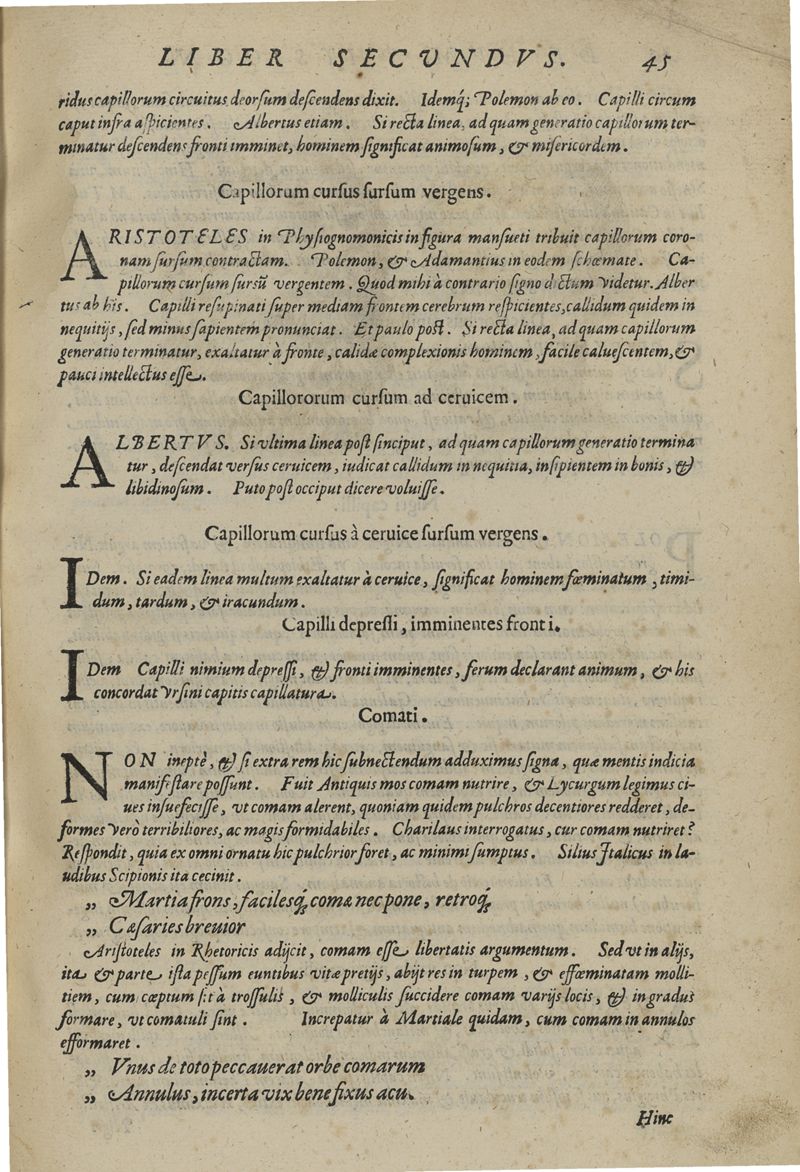 LIBER SECVNDVS. 45
ridus capillorum circuitus deorsum descendens dixit. Idemq́; Polemon ab eo. Capilli circum
caput infra aspicientes. Albertus etiam. Si recta linea, ad quam generatio capillorum ter-
minatur descendens fronti imminet, hominem significat animosum, & misericordem.
Capillorum cursus sursum vergens.
ARISTOTELES in Physiognomonicis in figura mansueti tribuit capillorum coro-
nam sursum contractam. Polemon, & Adamantius in eodem schœmate. Ca-
pillorum cursum sursū vergentem. Quod mihi à contrario signo dictum videtur. Alber
tus ab his. Capilli resupinati super mediam frontem cerebrum respicientes, callidum quidem in
nequitijs, sed minus sapientem pronunciat. Et paulo post. Si recta linea, ad quam capillorum
generatio terminatur, exaltatur à fronte, calidæ complexionis hominem, facile caluescentem, &
pauci intellectus esse.
Capillororum cursum ad ceruicem.
ALBERTVS. Si vltima linea post sinciput, ad quam capillorum generatio termina
tur, descendat versus ceruicem, iudicat callidum in nequitia, insipientem in bonis, &
libidinosum. Puto post occiput dicere voluisse.
Capillorum cursus à ceruice sursum vergens.
IDem. Si eadem linea multum exaltatur à ceruice, significat hominem fœminatum, timi-
dum, tardum, & iracundum.
Capilli depressi, imminentes fronti.
IDem Capilli nimium depressi, & fronti imminentes, ferum declarant animum, & his
concordat vrsini capitis capillatura.
Comati.
NON ineptè, & si extra rem hic subnectendum adduximus signa, quæ mentis indicia
manifestare possunt. Fuit Antiquis mos comam nutrire, & Lycurgum legimus ci-
ues insuefecisse, vt comam alerent, quoniam quidem pulchros decentiores redderet, de-
formes verò terribiliores, ac magis formidabiles. Charilaus interrogatus, cur comam nutriret?
Respondit, quia ex omni ornatu hic pulchrior foret, ac minimi sumptus. Silius Italicus in la-
udibus Scipionis ita cecinit.
„ Martia frons, facilesq́; comæ nec pone, retroq́;
„ Cæsaries breuior
Aristoteles in Rhetoricis adijcit, comam esse libertatis argumentum. Sed vt in alijs,
ita & parte ista pessum euntibus vitæ pretijs, abijt res in turpem, & effœminatam molli-
tiem, cum cœptum sit à trossulis, & molliculis succidere comam varijs locis, & in gradus
formare, vt comatuli sint. Increpatur à Martiale quidam, cum comam in annulos
efformaret.
„ Vnus de toto peccauerat orbe comarum
„ Annulus, incerta vix bene fixus acu.
Hinc